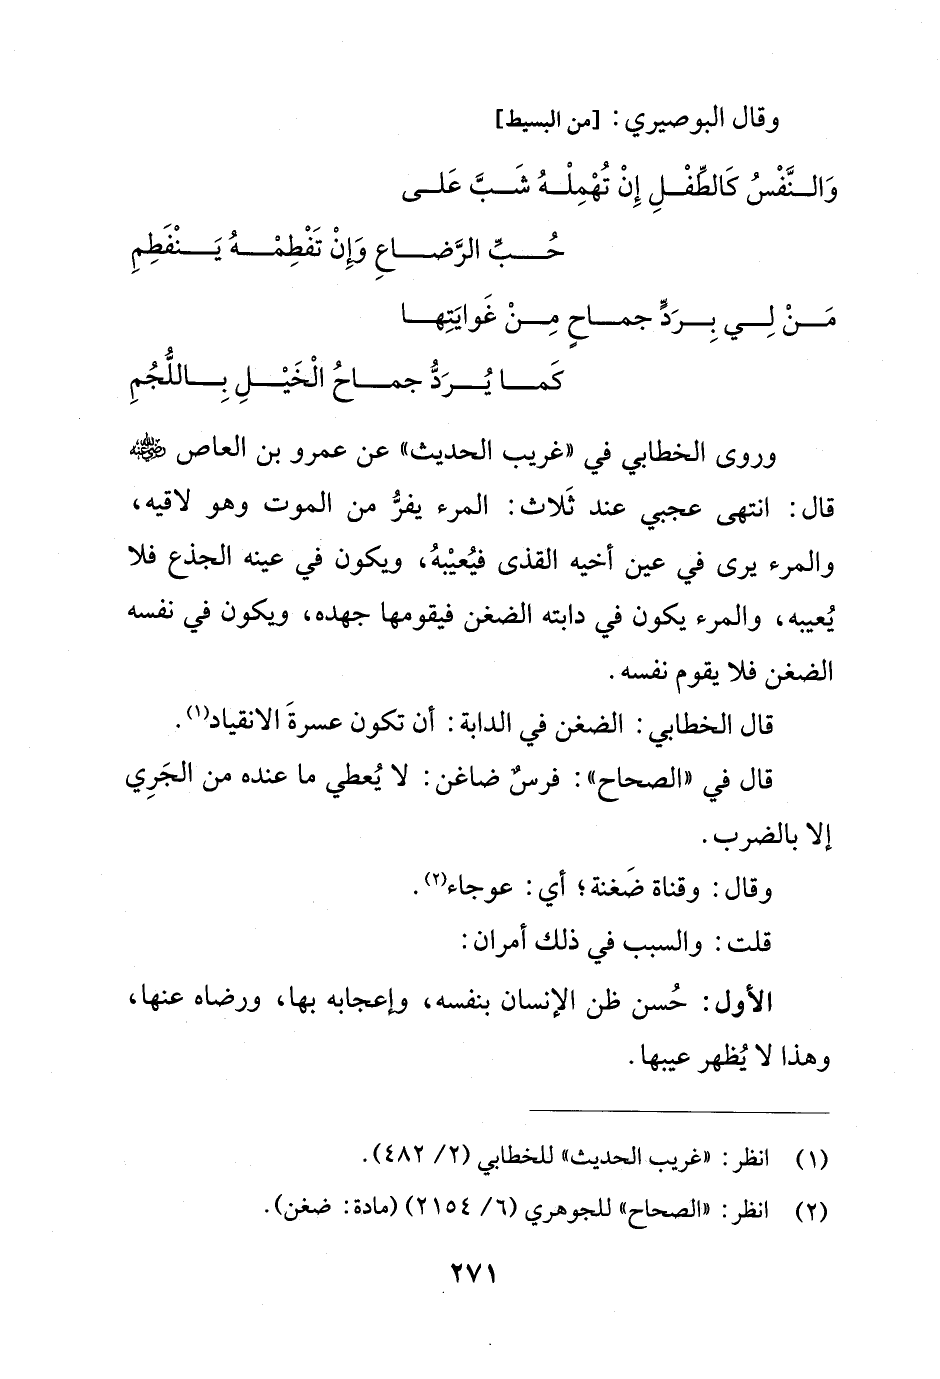 وقال البوصيري: [من البسيط]
وَالنَّفْسُ كَالطِّفْلِ إِنْ تُهْمِلْهُ شَبَّ عَلى
حُبِّ الرَّضاعِ وَإِنْ تَفْطِمْهُ يَنْفَطِمِ
مَنْ لِي بِرَدِّ جماحٍ مِنْ غَوايَتِها
كَما يُرَدُّ جماحُ الْخَيْلِ بِاللُّجُمِ
وروى الخطابي في «غريب الحديث» عن عمرو بن العاص رضي الله عنه
قال: انتهى عجبي عند ثَلاث: المرء يفرُّ من الموت وهو لاقيه،
والمرء يرى في عين أخيه القذى فيُعيْبهُ، ويكون في عينه الجذع فلا
يُعيبه، والمرء يكون في دابته الضغن فيقومها جهده، ويكون في نفسه
الضغن فلا يقوم نفسه.
قال الخطابي: الضغن في الدابة: أن تكون عسرةَ الانقياد(١).
قال في «الصحاح»: فرسٌ ضاغن: لا يُعطي ما عنده من الجَرِي
إلا بالضرب.
وقال: وقناة ضَغنة؛ أي: عوجاء(٢).
قلت: والسبب في ذلك أمران:
الأول: حُسن ظن الإنسان بنفسه، وإعجابه بها، ورضاه عنها،
وهذا لا يُظهر عيبها.
(١) انظر: «غريب الحديث» للخطابي (٢/ ٤٨٢).
(٢) انظر: «الصحاح» للجوهري (٦/ ٢١٥٤) (مادة: ضغن).
٢٧١